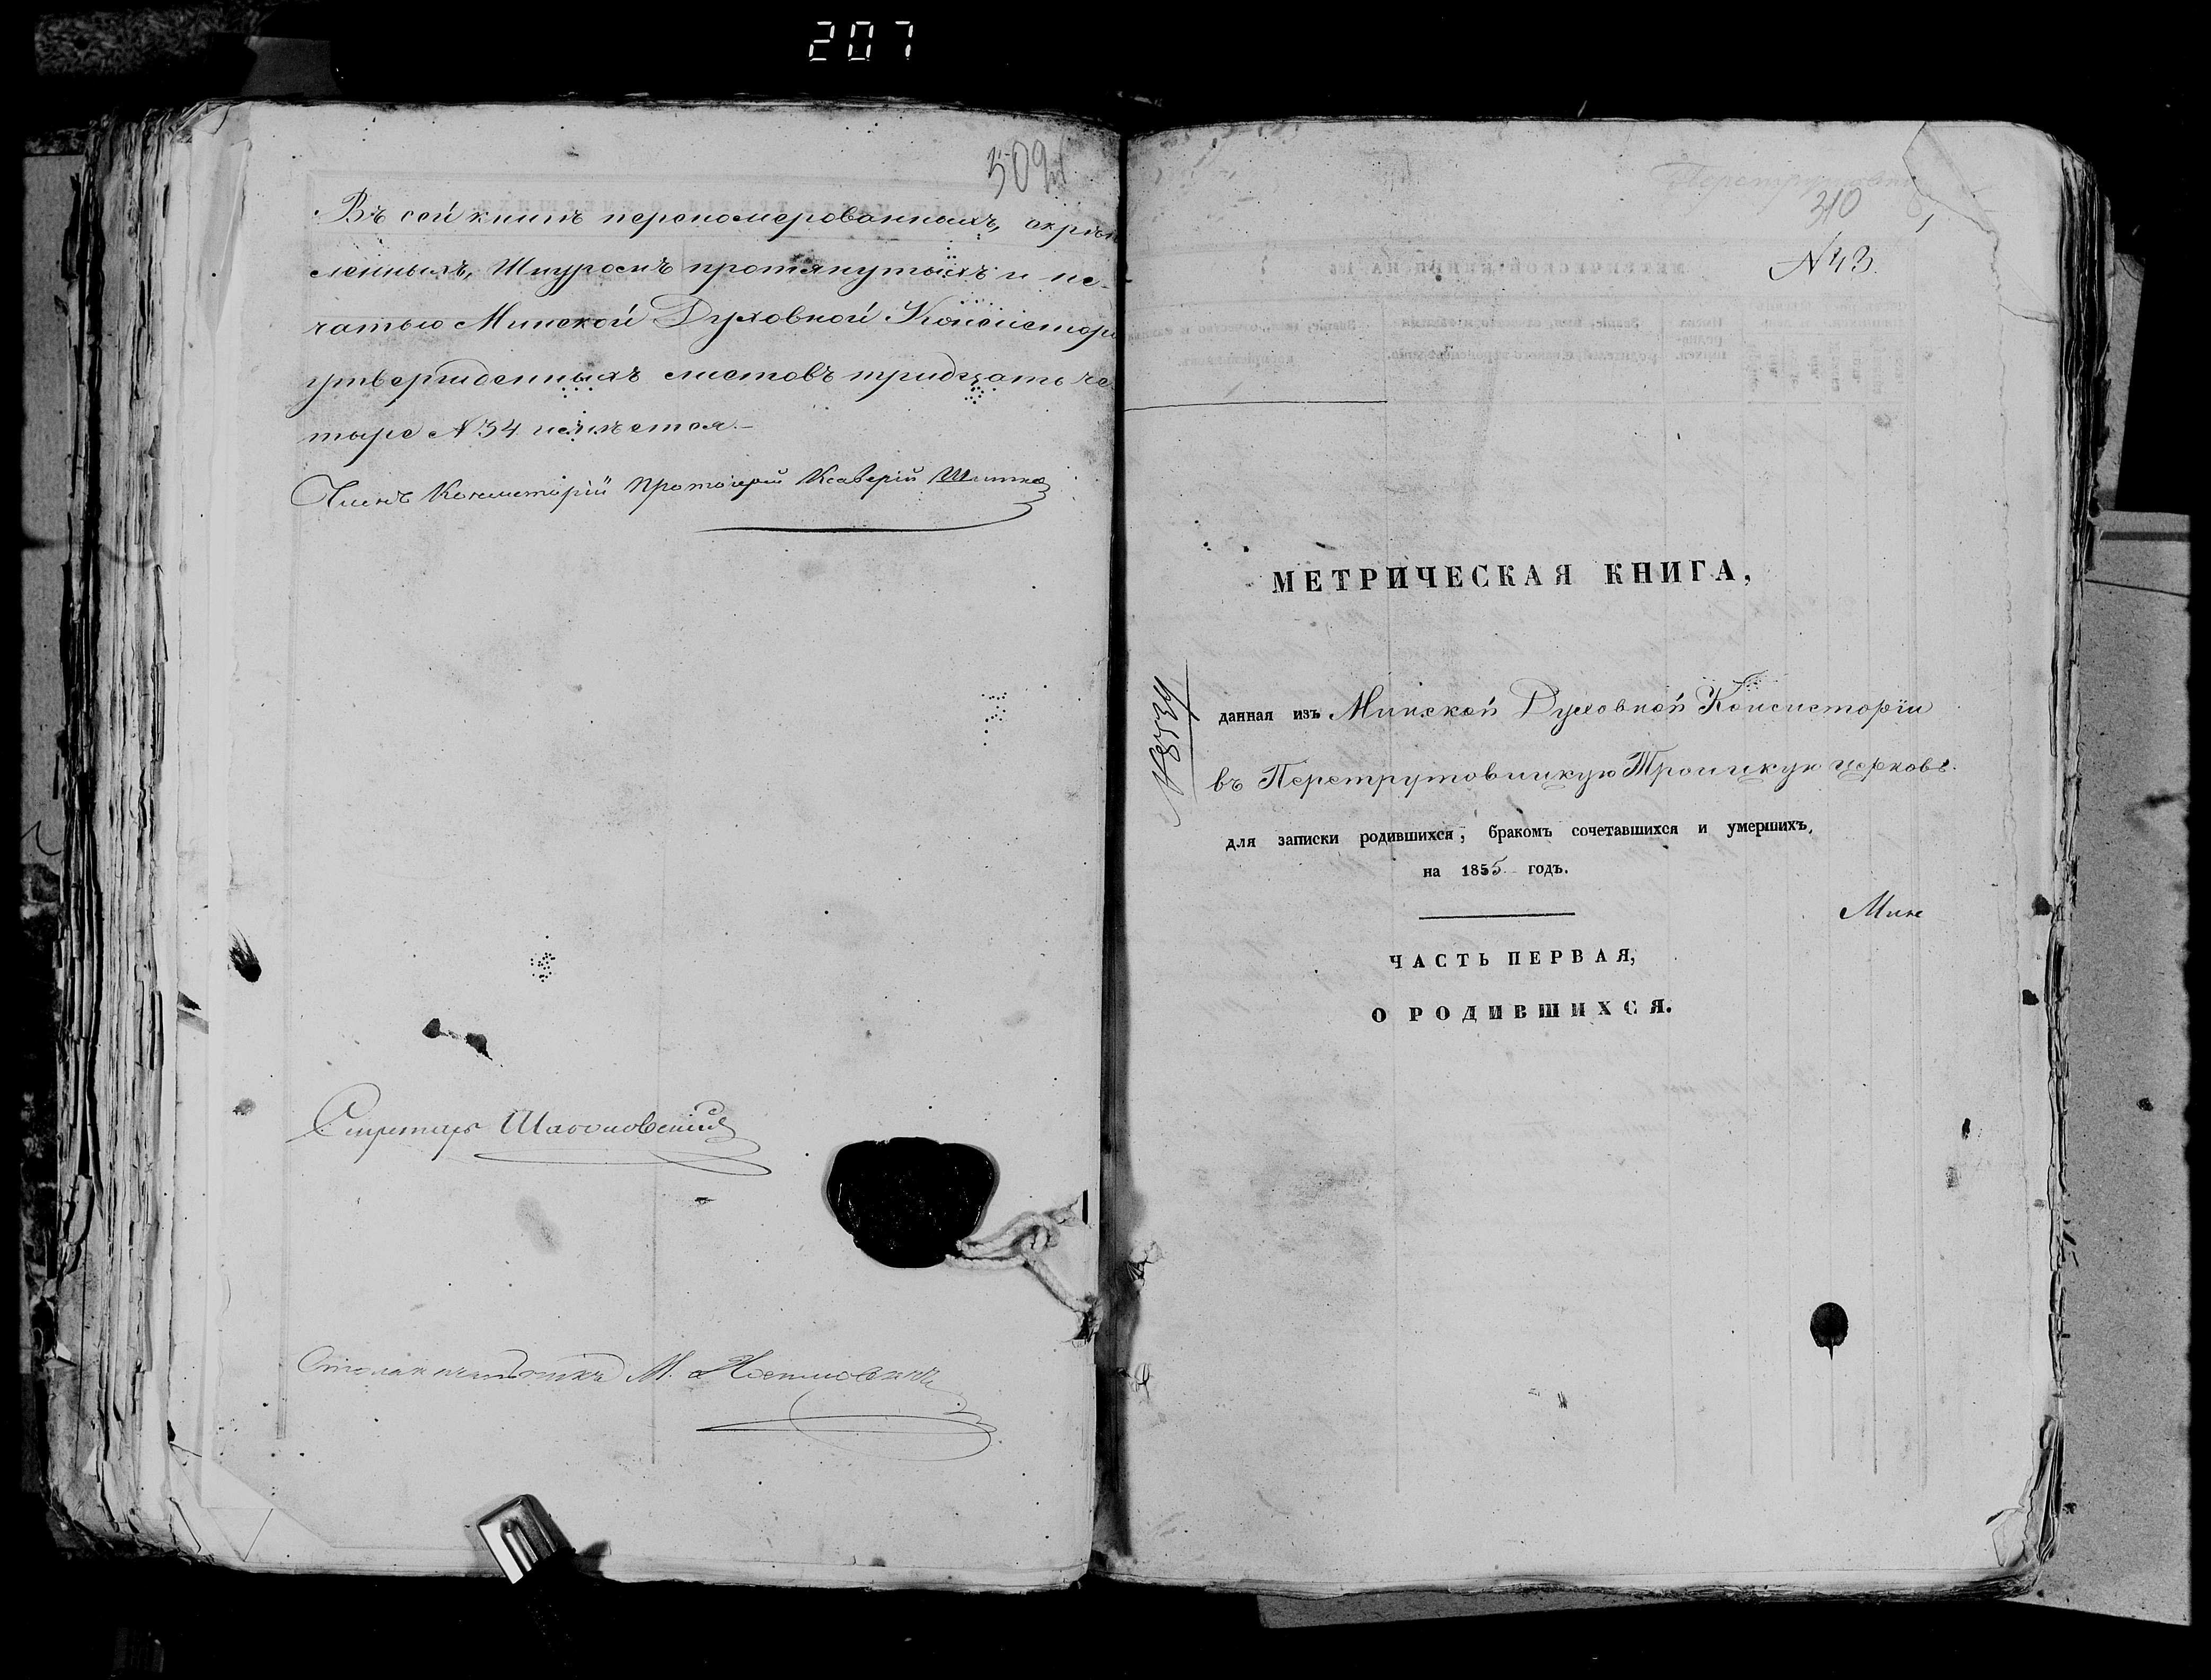 207
Въ сей книгѣ перепомерованныхъ, скрѣп
леныхъ, Шнуромъ протянутыхъ и пе-
чатью Минской Духовной Консистори
утвержденныхъ листовъ тридцать че
тыре № 34 числится.
Членъ Консисторіи Протоіерей Ксаверій
Секретарь
Столоначальникъ М.
310
№ 43.
МЕТРИЧЕСКАЯ КНИГА,
данная изъ Минской Духовной Консисторіи
въ Перетрутовицкую Троицкую церковь.
для записки родившихся, бракомъ сочетавшихся и умершихъ,
на 1855 годъ.
Мин
ЧАСТЬ ПЕРВАЯ,
О РОДИВШИХСЯ.